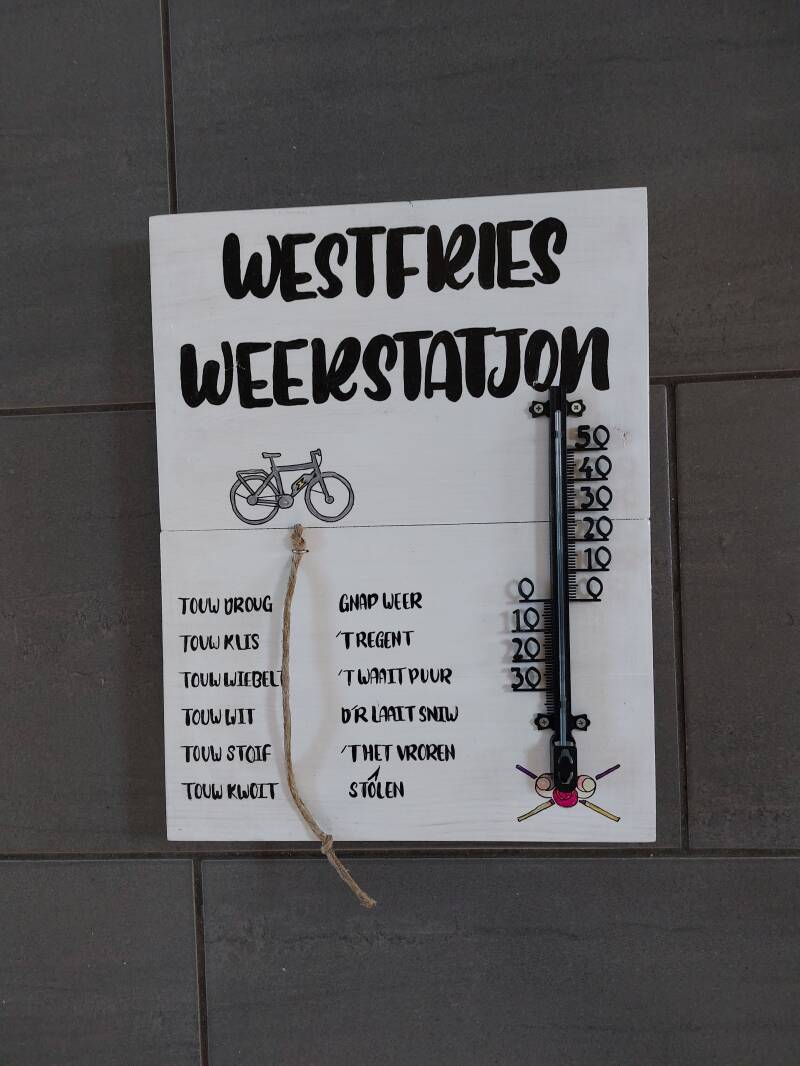 WESTFRIES
WEERSTATJON
TOUW DROUG GNAP WEER
TOUW KLIS 'T REGENT
TOUW WIEBELT 'T WAAIT PUUR
TOUW WIT D'R LAAIT SNIW
TOUW STOIF 'T HET VROREN
TOUW KWOIT STÓLEN
50
40
30
20
10
0 0
10
20
30